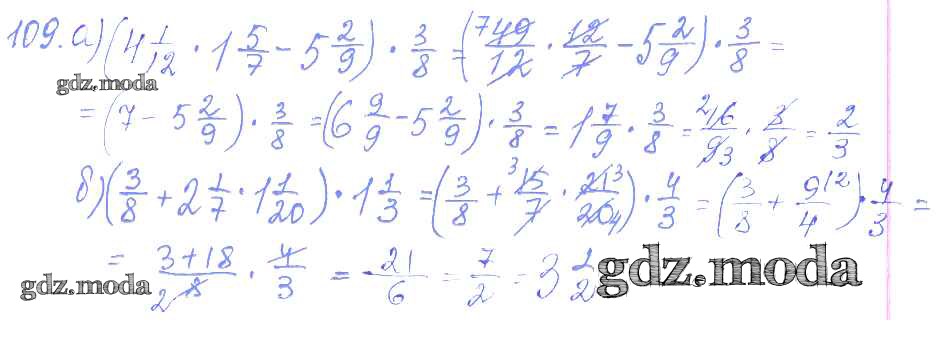 109. а) (4 1/12 · 1 5/7 − 5 2/9) · 3/8 = (⁷49/12 · 12/7 − 5 2/9) · 3/8 =
gdz.moda
= (7 − 5 2/9) · 3/8 = (6 9/9 − 5 2/9) · 3/8 = 1 7/9 · 3/8 = ²16/9₃ · 3/8 = 2/3
б) (3/8 + 2 1/7 · 1 1/20) · 1 1/3 = (3/8 + ³15/7 · 21³/20₄) · 4/3 = (3/8 + 9^(2/4) · 4/3 =
= 3+18/₂8 · 4/3 = 21/6 = 7/2 = 3 1/2
gdz.moda
gdz.moda